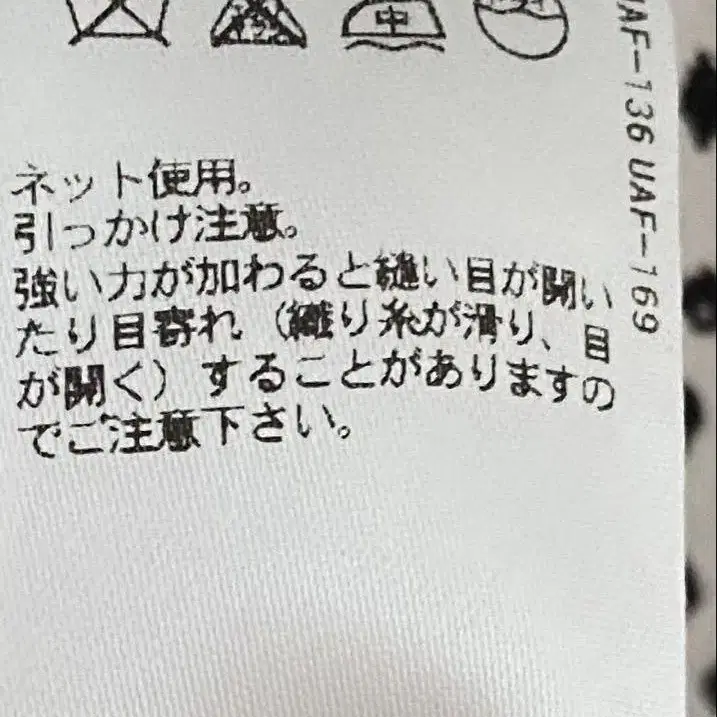 中
ネット使用。
引っかけ注意。
強い力が加わると縫い目が開い
たり目寄れ（織り糸が滑り、目
が開く）することがありますの
でご注意下さい。
UAF-136 UAF-169